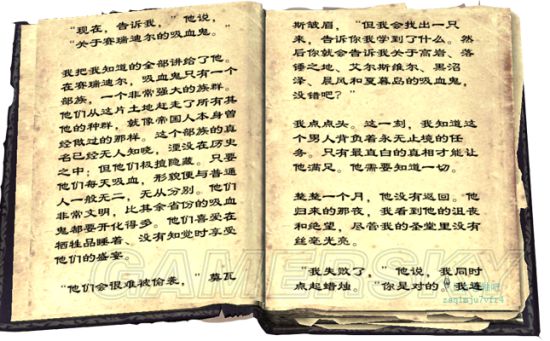 “现在，告诉我，”他说，
“关于赛瑞迪尔的吸血鬼。”
我把我知道的全部讲给了他。
在赛瑞迪尔，吸血鬼只有一个
部族，一个非常强大的族群。
他们从这片土地赶走了所有其
他的种群，就像帝国人本身曾
经做过的那样。这个部族的真
名已经无人知晓，湮没在历史
之中；但他们极擅隐藏。只要
他们每天吸血，形貌便与普通
人一般无二，无从分别。他们
非常文明，比其余省份的吸血
鬼都要开化得多。他们喜爱在
牺牲品睡着、没有知觉时享受
他们的盛宴。
“他们会很难被偷袭，”莫瓦
斯皱眉，“但我会找出一只
来，告诉你我学到了什么。然
后你就会告诉我关于高岩、落
锤之地、艾尔斯维尔、黑沼
泽、晨风和夏暮岛的吸血鬼，
没错吧？”
我点点头。这一刻，我知道这
个男人背负着永无止境的任
务。只有最直白的真相才能让
他满足。他需要知道一切。
整整一个月，他没有返回。他
归来的那夜，我看到他的沮丧
和绝望，尽管我的圣堂里没有
丝毫光亮。
“我失败了，”他说，我同时
点起蜡烛。“你是对的。我连
GAMERSKY
zaq1mju7vfr4